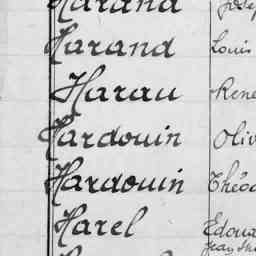 Harand
Harand Louis
Harau René
Hardouin Oliv
Hardouin Théod
Harel Edoua